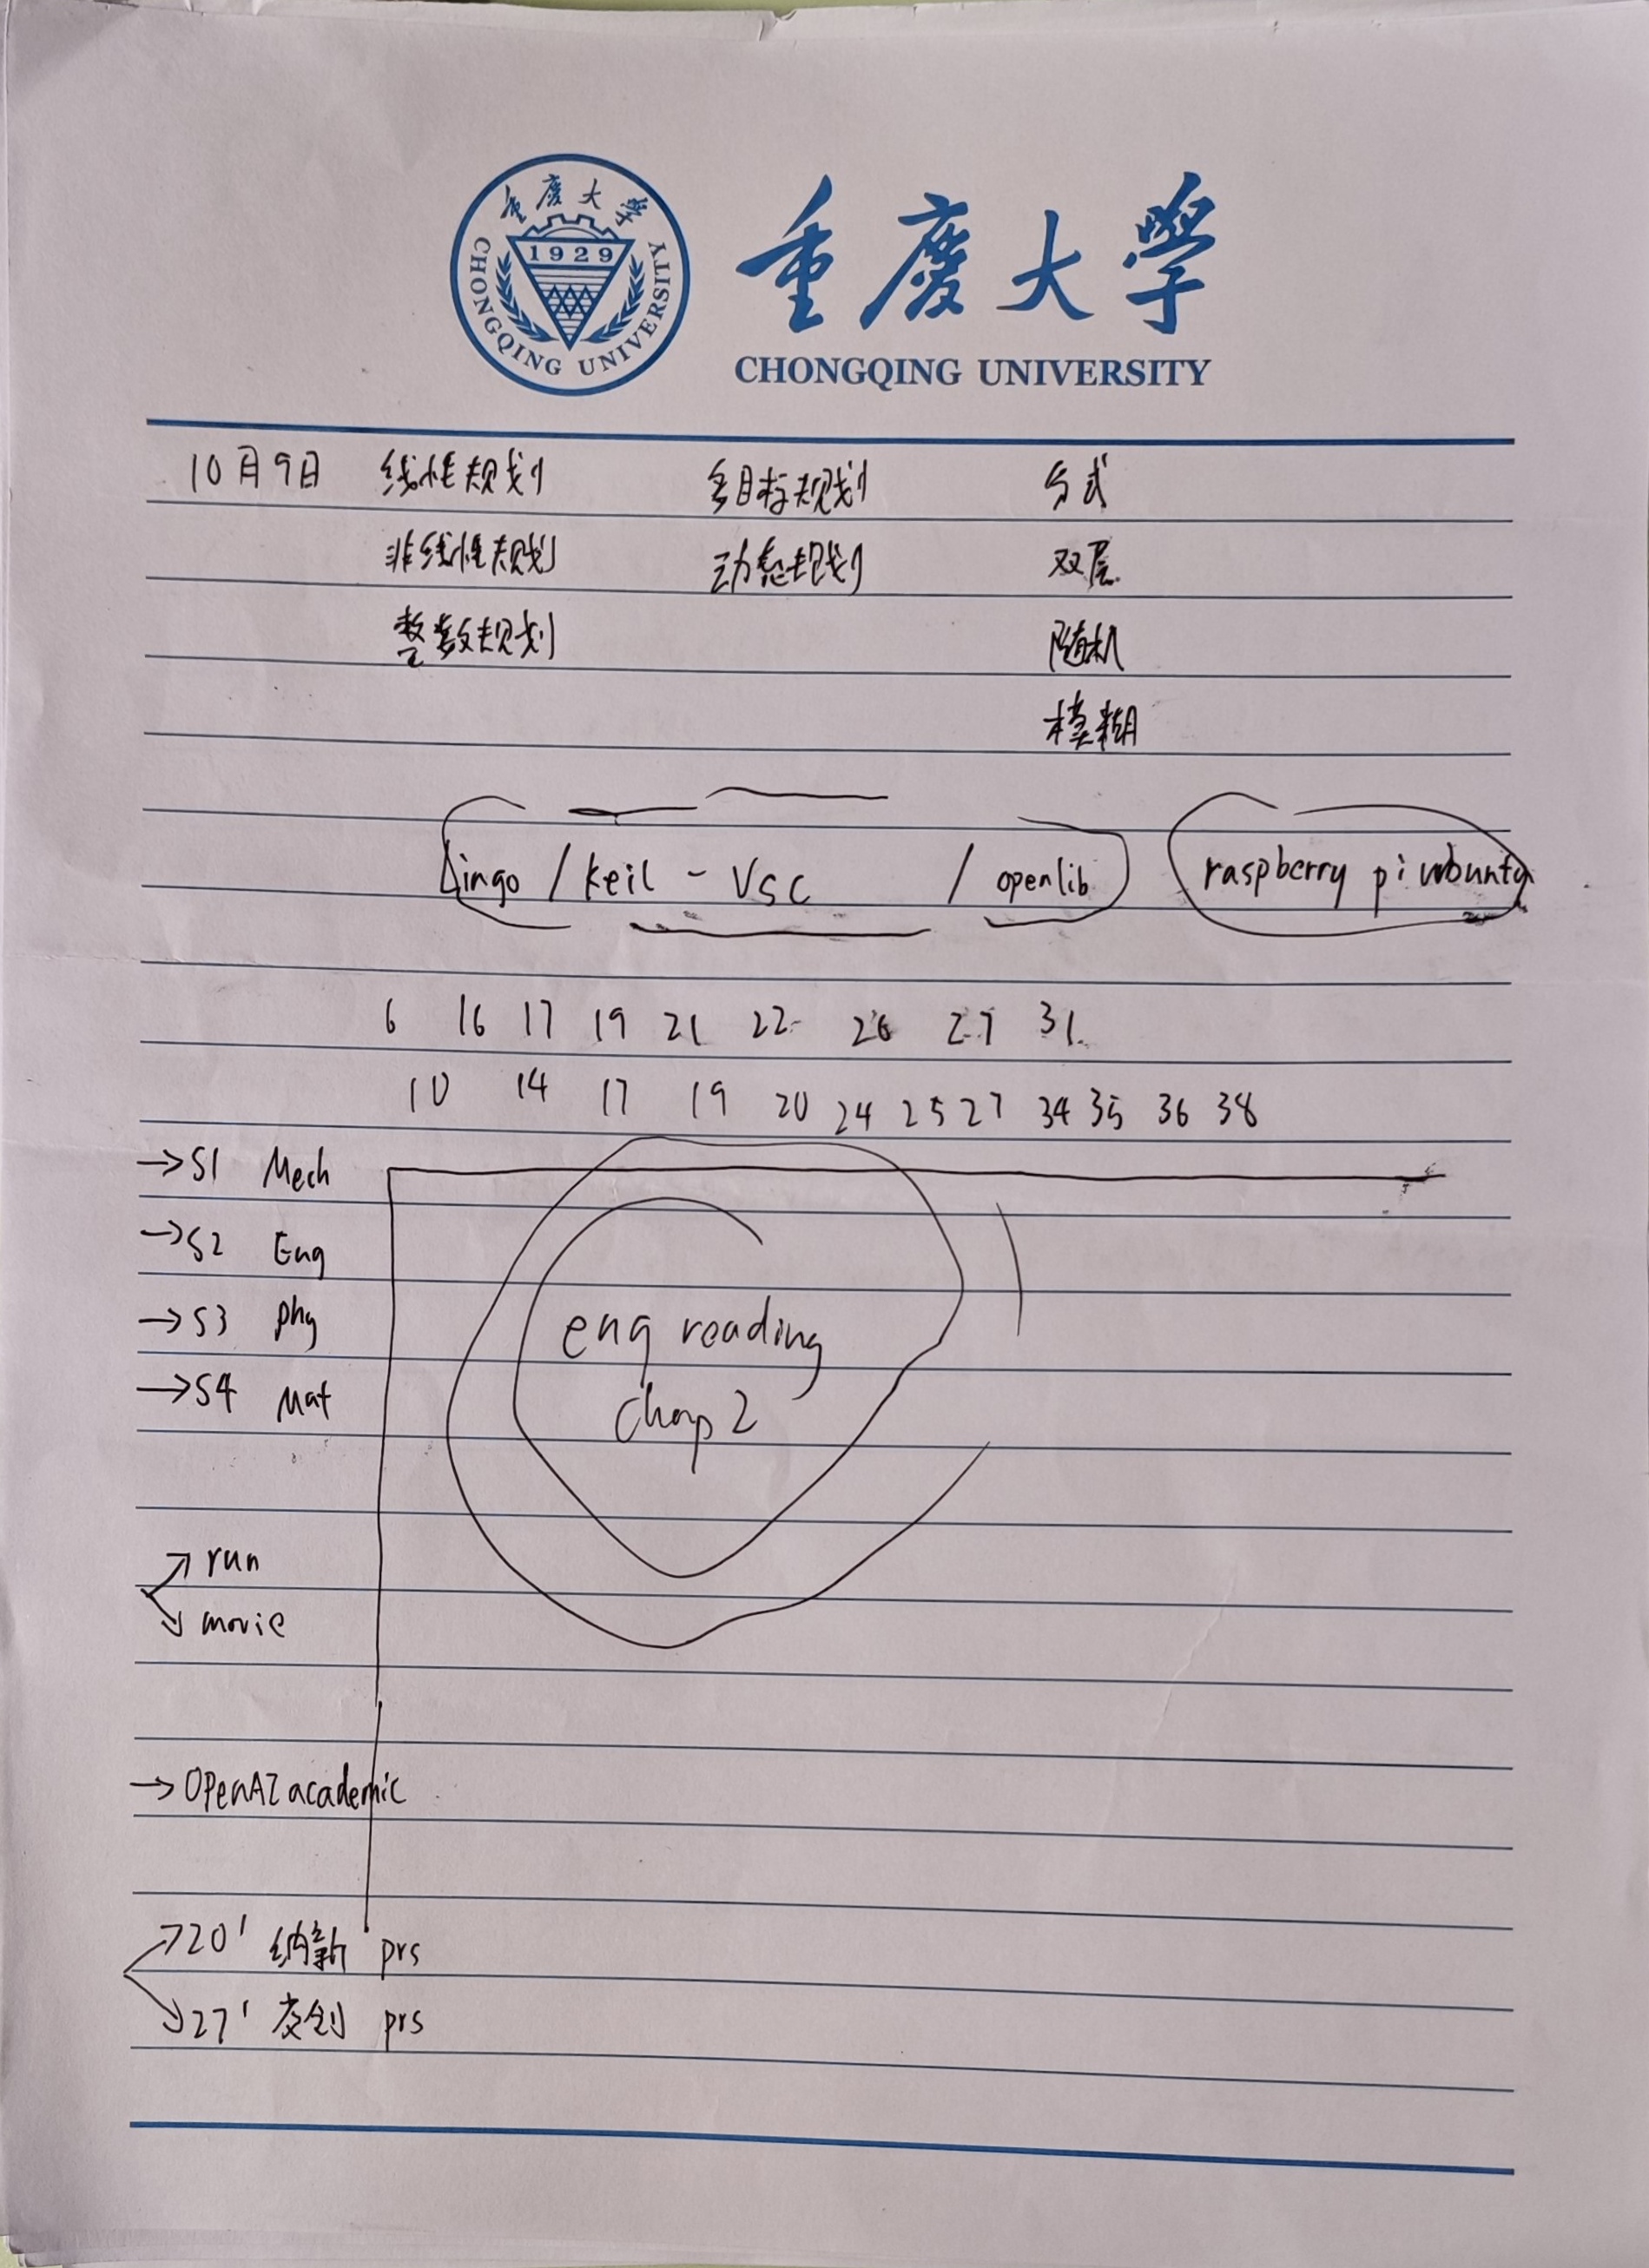 重慶大學
1929
CHONGQING UNIVERSITY
重慶大學
CHONGQING UNIVERSITY
10月9日 线性规划 多目标规划 分式
非线性规划 动态规划 双层
整数规划 随机
模糊
Lingo / keil - VSC / openlib raspberry pi
6 16 17 19 21 22 26 27 31
10 14 17 19 20 24 25 27 34 35 36 38
→S1 Mech
→S2 Eng
→S3 phy
→S4 Mat
eng reading
chap 2
run
movie
→ OpenAI academic
20' 纳新 prs
27' prs